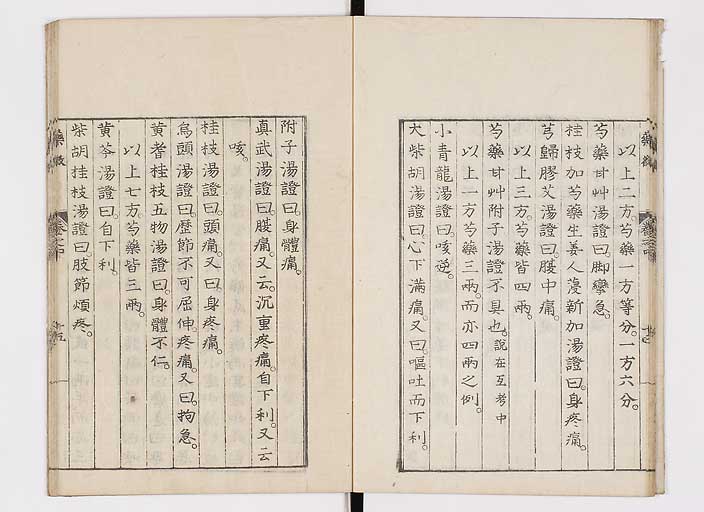 以上二方。芍藥一方等分。一方六分。
芍藥甘艸湯證曰。脚攣急。
桂枝加芍藥生姜人薓新加湯證曰。身疼痛。
芎歸膠艾湯證曰。腹中痛。
以上三方。芍藥皆四兩。
芍藥甘艸附子湯證不具也。說在互考中
以上一方芍藥三兩。而亦四兩之例。
小青龍湯證曰。咳逆。
大柴胡湯證曰。心下滿痛。又曰。嘔吐而下利。
附子湯證曰。身體痛。
真武湯證曰。腹痛。又云。沉重疼痛。自下利。又云
咳。
桂枝湯證曰。頭痛。又曰。身疼痛。
烏頭湯證曰。歷節不可屈伸。疼痛。又曰。拘急。
黃耆桂枝五物湯證曰。身體不仁。
以上七方芍藥皆三兩。
黃芩湯證曰。自下利。
柴胡桂枝湯證曰。肢節煩疼。
藥徵
卷之中
藥徵
卷之中